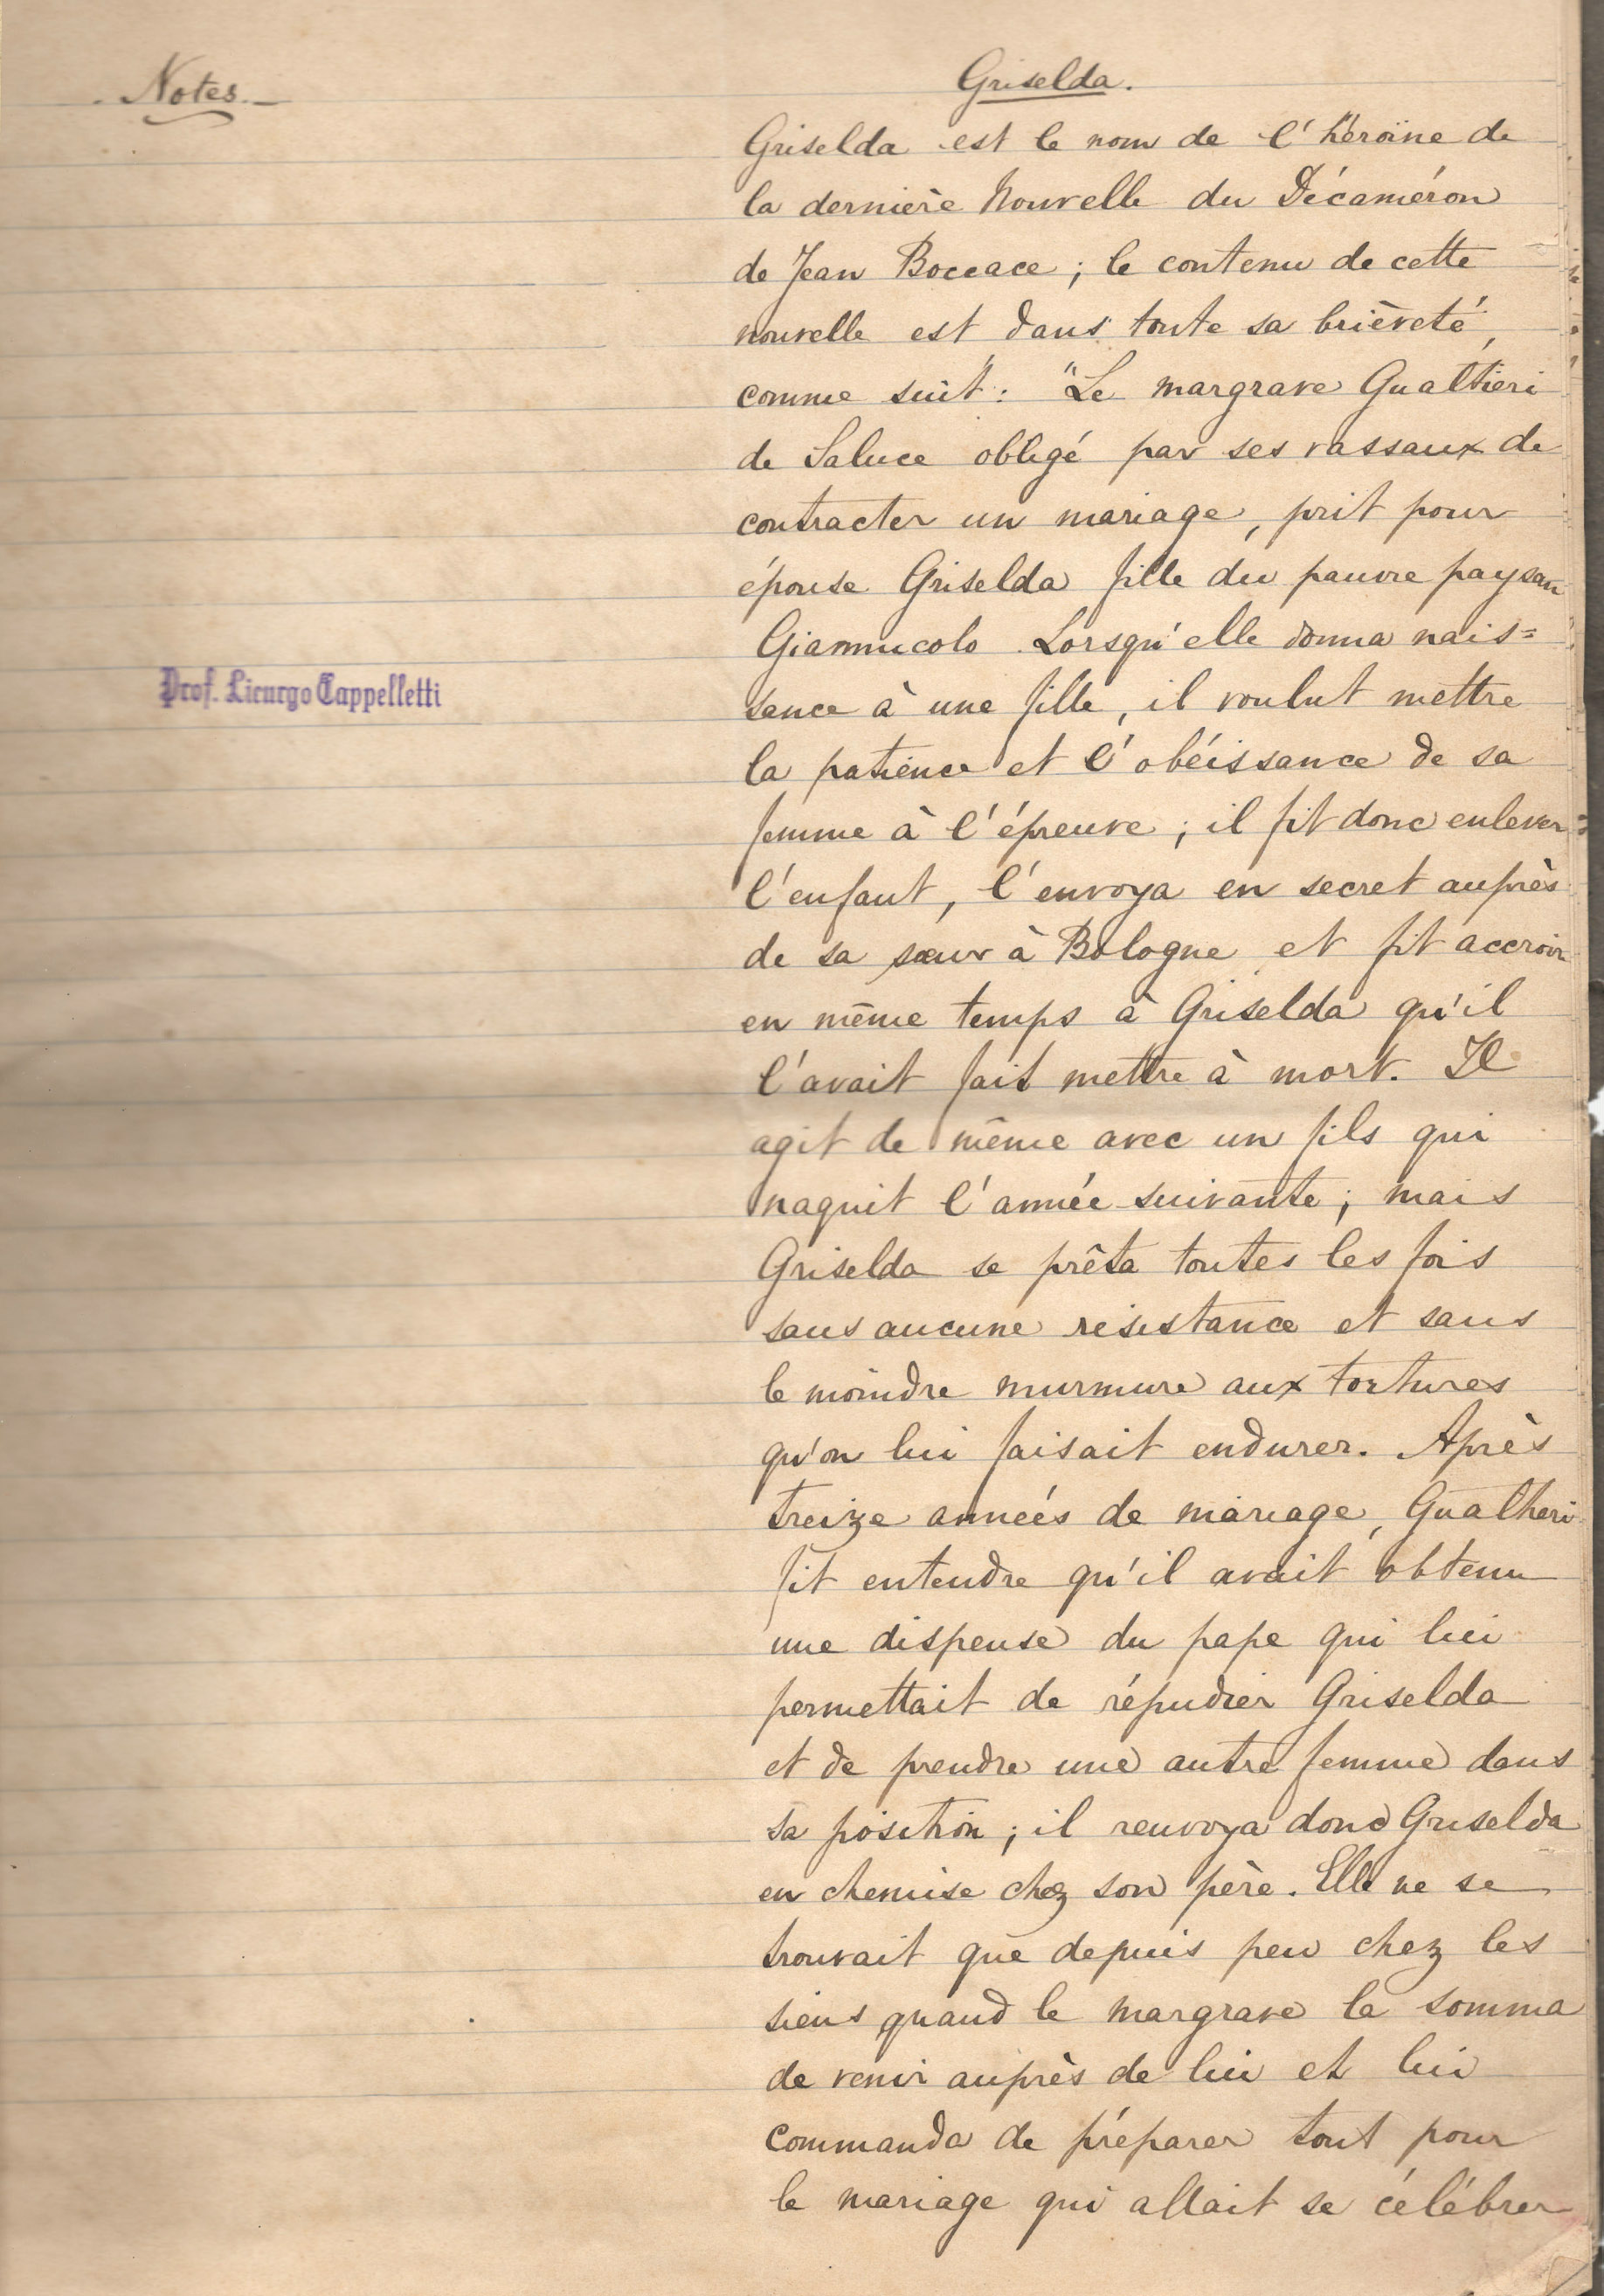 Notes.
Griselda.
Griselda est le nom de l'héroïne de
la dernière Nouvelle du Décaméron
de Jean Boccace ; le contenu de cette
nouvelle est dans toute sa brièveté,
comme suit : "Le margrave Gualtieri
de Saluce obligé par ses vassaux de
contracter un mariage, prit pour
épouse Griselda fille du pauvre paysan
Giannucolo Lorsqu'elle donna nais=
sance à une fille, il voulut mettre
Prof. Licurgo Cappelletti
la patience et l'obéissance de sa
femme à l'épreuve ; il fit donc enlever
l'enfant, l'envoya en secret auprès
de sa sœur à Bologne et fit accroir
en même temps à Griselda qu'il
l'avait fait mettre à mort. Il
agit de même avec un fils qui
naquit l'année suivante ; mais
Griselda se prêta toutes les fois
sans aucune résistance et sans
le moindre murmure aux tortures
qu'on lui faisait endurer. Après
treize années de mariage, Gualtieri
fit entendre qu'il avait obtenu
une dispense du pape qui lui
permettait de répudier Griselda
et de prendre une autre femme dans
sa position ; il renvoya donc Griselda
en chemise chez son père. Elle ne se
trouvait que depuis peu chez les
siens quand le margrave la somma
de venir auprès de lui et lui
commanda de préparer tout pour
le mariage qui allait se célébrer